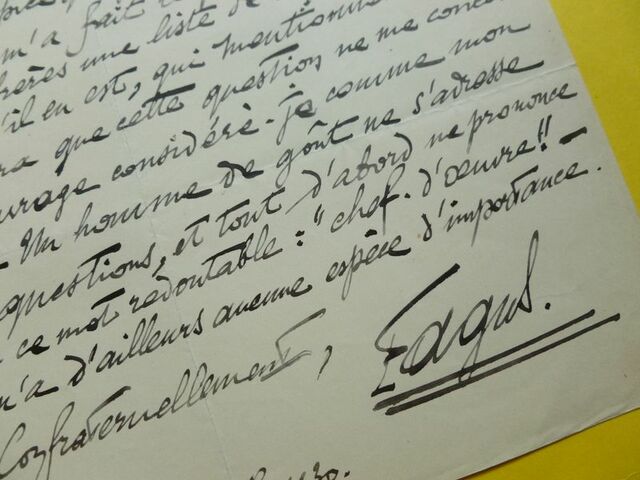 m'a fait
une liste de
s'il en est, qui mentionne
ra que cette question ne me conce
uvrage considéré-je comme mon
Un homme de goût ne s'adresse
questions, et tout d'abord ne prononce
ce mot redoutable : "chef-d'œuvre!" -
n'a d'ailleurs aucune espèce d'importance.
Confraternellement,
Fagus.